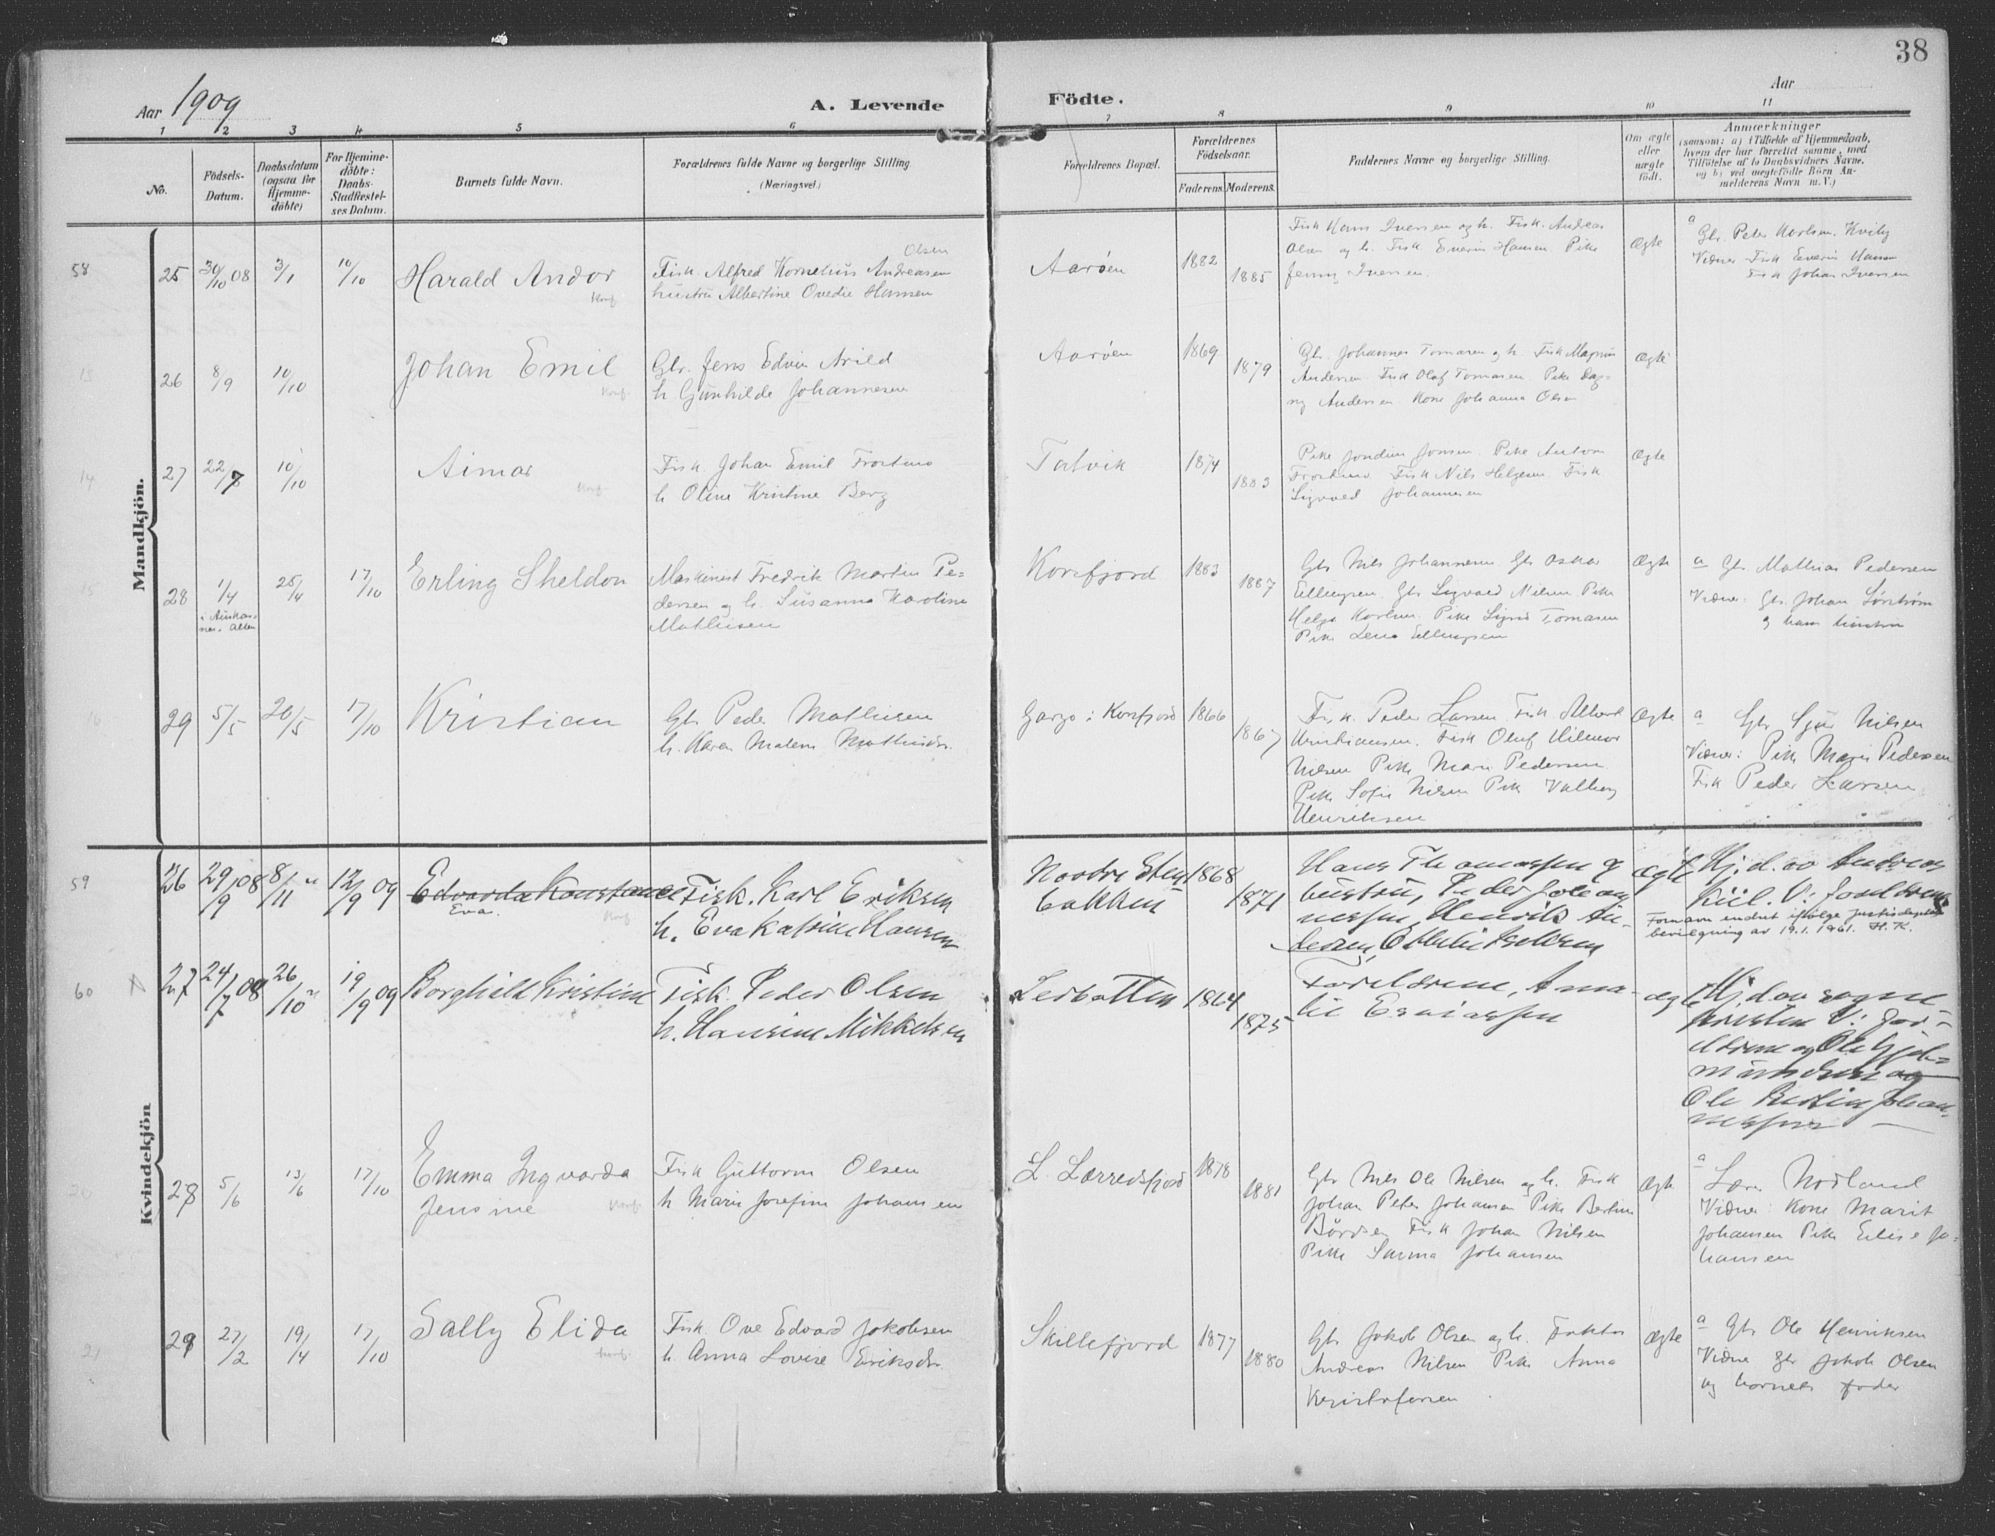 38
Aar 1909
A. Levende
Födte.
Aar
1 2 3 4 5 6 7 8 9 10 11
No.
Födsels-
Datum.
Daabsdatum
(ogsaa for
Hjemme-
döbte)
For Hjemme-
döbte:
Daabs-
Stadfæstel-
ses Datum.
Barnets fulde Navn.
Forældrenes fulde Navne og borgerlige Stilling.
(Næringsvei.)
Forældrenes Bopæl.
Forældrenes
Födselsaar.
Faderens. Moderens.
Faddernes Navne og borgerlige Stilling.
Om ægte
eller
uægte
födt.
Anmærkninger
(saasom: a) i Tilfælde af Hjemmedaab,
hvem der har forrettet samme, med
Tilföielse af to Daabsvidners Navne,
og b) ved uægtefödte Börn An-
melderens Navn m. V.)
Mandkjön.
58
25 30/10 08 3/1 10/10 Harald Andor
Konf.
Olsen
Fisk. Alfred Kornelius Andreasen
hustru Albertine Ovedie Hansen
Aarøen 1882 1885
Fisk Hans Iversen og h. Fisk. Andreas
Olsen og h. Fisk Everin Hansen Pike
Jenny Iversen.
Ægte
a Gbr. Peter Karlsen. Kviby
Vidner Fisk Everin Hansen
Fisk Johan Iversen
13
26 8/9 10/10 Johan Emil
Konf.
Gbr. Jens Edvin Arild
h. Gunhilde Johannesen
Aarøen 1869 1879
Gbr. Johannes Tomasen og h. Fisk Magnus
Andersen Fisk Olaf Tomasen Pike Dag-
ny Andersen Kone Johanna Olsen
Ægte
14
27 22/7 10/10 Aimar
Konf.
Fisk. Johan Emil Frostmo
h. Oline Kristine Berg
Talvik 1874 1883
Pike Jondine Jonsen. Pike Antona
Frostmo Fisk Nils Helgesen Fisk
Sigvald Johannesen
Ægte
15
28 1/4 25/4 17/10 Erling Sheldon
Maskinist Fredrik Martin Pe-
dersen og h. Susanna Karoline
Mathisen
Korsfjord 1883 1887
Gbr Nils Johannesen Gbr Oskar
Ellingsen. Gbr Sigvald Nilsen Pike
Helga Karlsen. Pike Sigrid Tomasen
Pike Lena Ellingsen
Ægte
a Gbr Mathias Pedersen
Vidner: Gbr. Johan Sørstrøm
og hans hustru
16
29 5/5 20/5 17/10 Kristian
Gbr Peder Mathisen
h. Karen Malene Mathisdr.
Gargo i Korsfjord 1866 1867
Fisk. Peder Larsen Fisk Albert
Kristiansen. Fisk Oluf Hilmar
Nilsen Pike Marie Pedersen
Pike Sofie Nilsen Pike Valborg
Henriksen
Ægte
a Gbr Nilsen
Vidner: Pike Marie Pedersen
Fisk Peder Larsen
Kvindekjön
59
26 29/9 08 8/11 12/9 09 Edvarda Konstance
Eva.
Konf.
Fisk. Karl Eriksen
h. Eva Katrine Hansen
Nordre Sten
bakken 1868 1871
Hans Thomassen og
hustru, Peder Johan
nessen, Henrik An-
dersen,
ægte
Hj. d. av Andreas
Kiil. V: forældrene
Fornavn endret ifølge Justisdeptets
bevilgning av 19.1.1961. H.K.
60
27 24/7 08 26/10 19/9 09 Borghild Kristine
Fisk. Peder Olsen
h. Hansine Mikkelsen
Lerbotten 1864 1875
Foreldrene, Ama-
lie Esaiassen
ægte
Hj. d. av
Kristen V: for-
eldrene og Ole
og
Ole Johan-
nessen
28 5/6 13/6 17/10 Emma Ingvarda
Jensine
Konf.
Fisk Guttorm Olsen
h Marie Josefine Johansen
L. Lerresfjord 1878 1881
Gbr Nils Ole Nilsen og h. Fisk
Johan Peter Johansen Pike Bertine
Børdsen Fisk Johan Nilsen
Pike Sanna Johansen
Ægte
a Lærer Nordland
Vidner: Kone Marit
Johansen Pike Elise Jo-
hansen
21
29 27/2 19/4 17/10 Sally Elida
Konf.
Fisk Ove Edvard Jakobsen
h. Anna Lovise Eriksdr.
Skillefjord 1877 1880
Gbr Jakob Olsen og h. Faktor
Andreas Nilsen Pike Anna
Kristofersen
Ægte
a Gbr Ole Henriksen
Vidne Gbr Jakob Olsen
og barnets fader